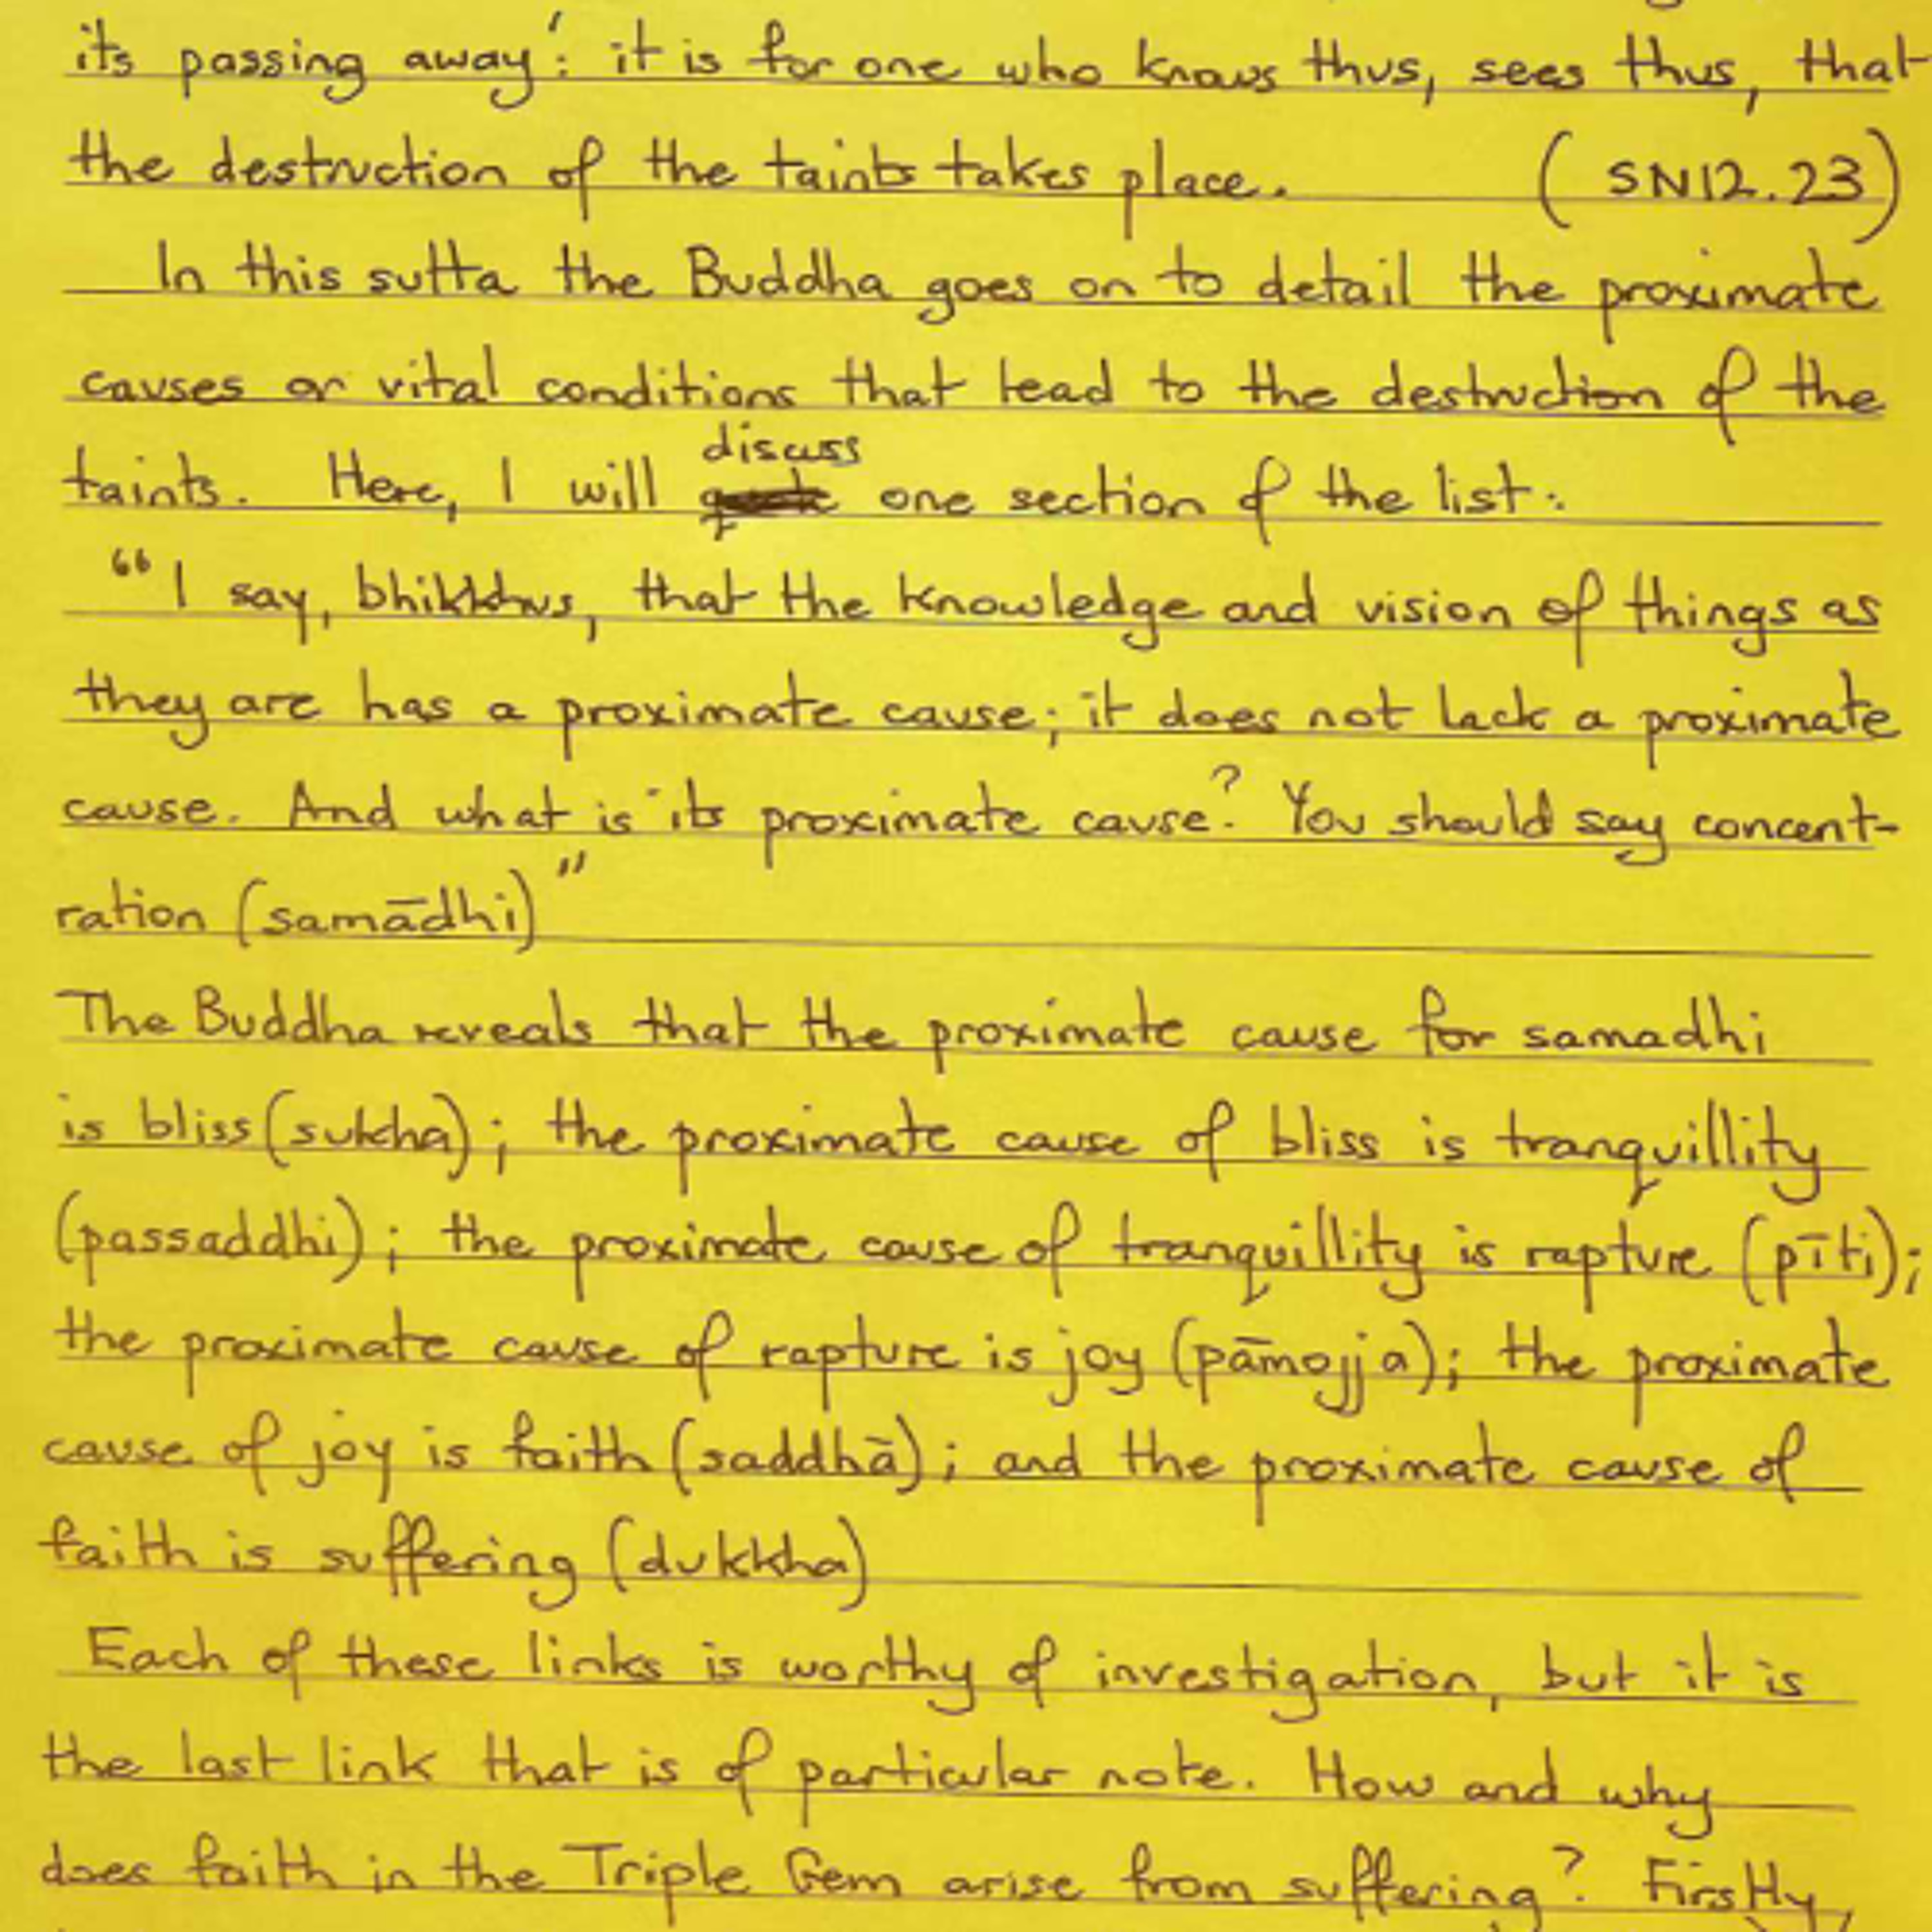 its passing away': it is for one who knows thus, sees thus, that
the destruction of the taints takes place. (SN12.23)
In this sutta the Buddha goes on to detail the proximate
causes or vital conditions that lead to the destruction of the
discuss
taints. Here, I will one section of the list:
“I say, bhikkhus, that the knowledge and vision of things as
they are has a proximate cause; it does not lack a proximate
cause. And what is its proximate cause? You should say concent-
ration (samādhi)”
The Buddha reveals that the proximate cause for samadhi
is bliss (sukha); the proximate cause of bliss is tranquillity
(passaddhi); the proximate cause of tranquillity is rapture (pīti);
the proximate cause of rapture is joy (pāmojja); the proximate
cause of joy is faith (saddhā); and the proximate cause of
faith is suffering (dukkha)
Each of these links is worthy of investigation, but it is
the last link that is of particular note. How and why
does faith in the Triple Gem arise from suffering? Firstly,